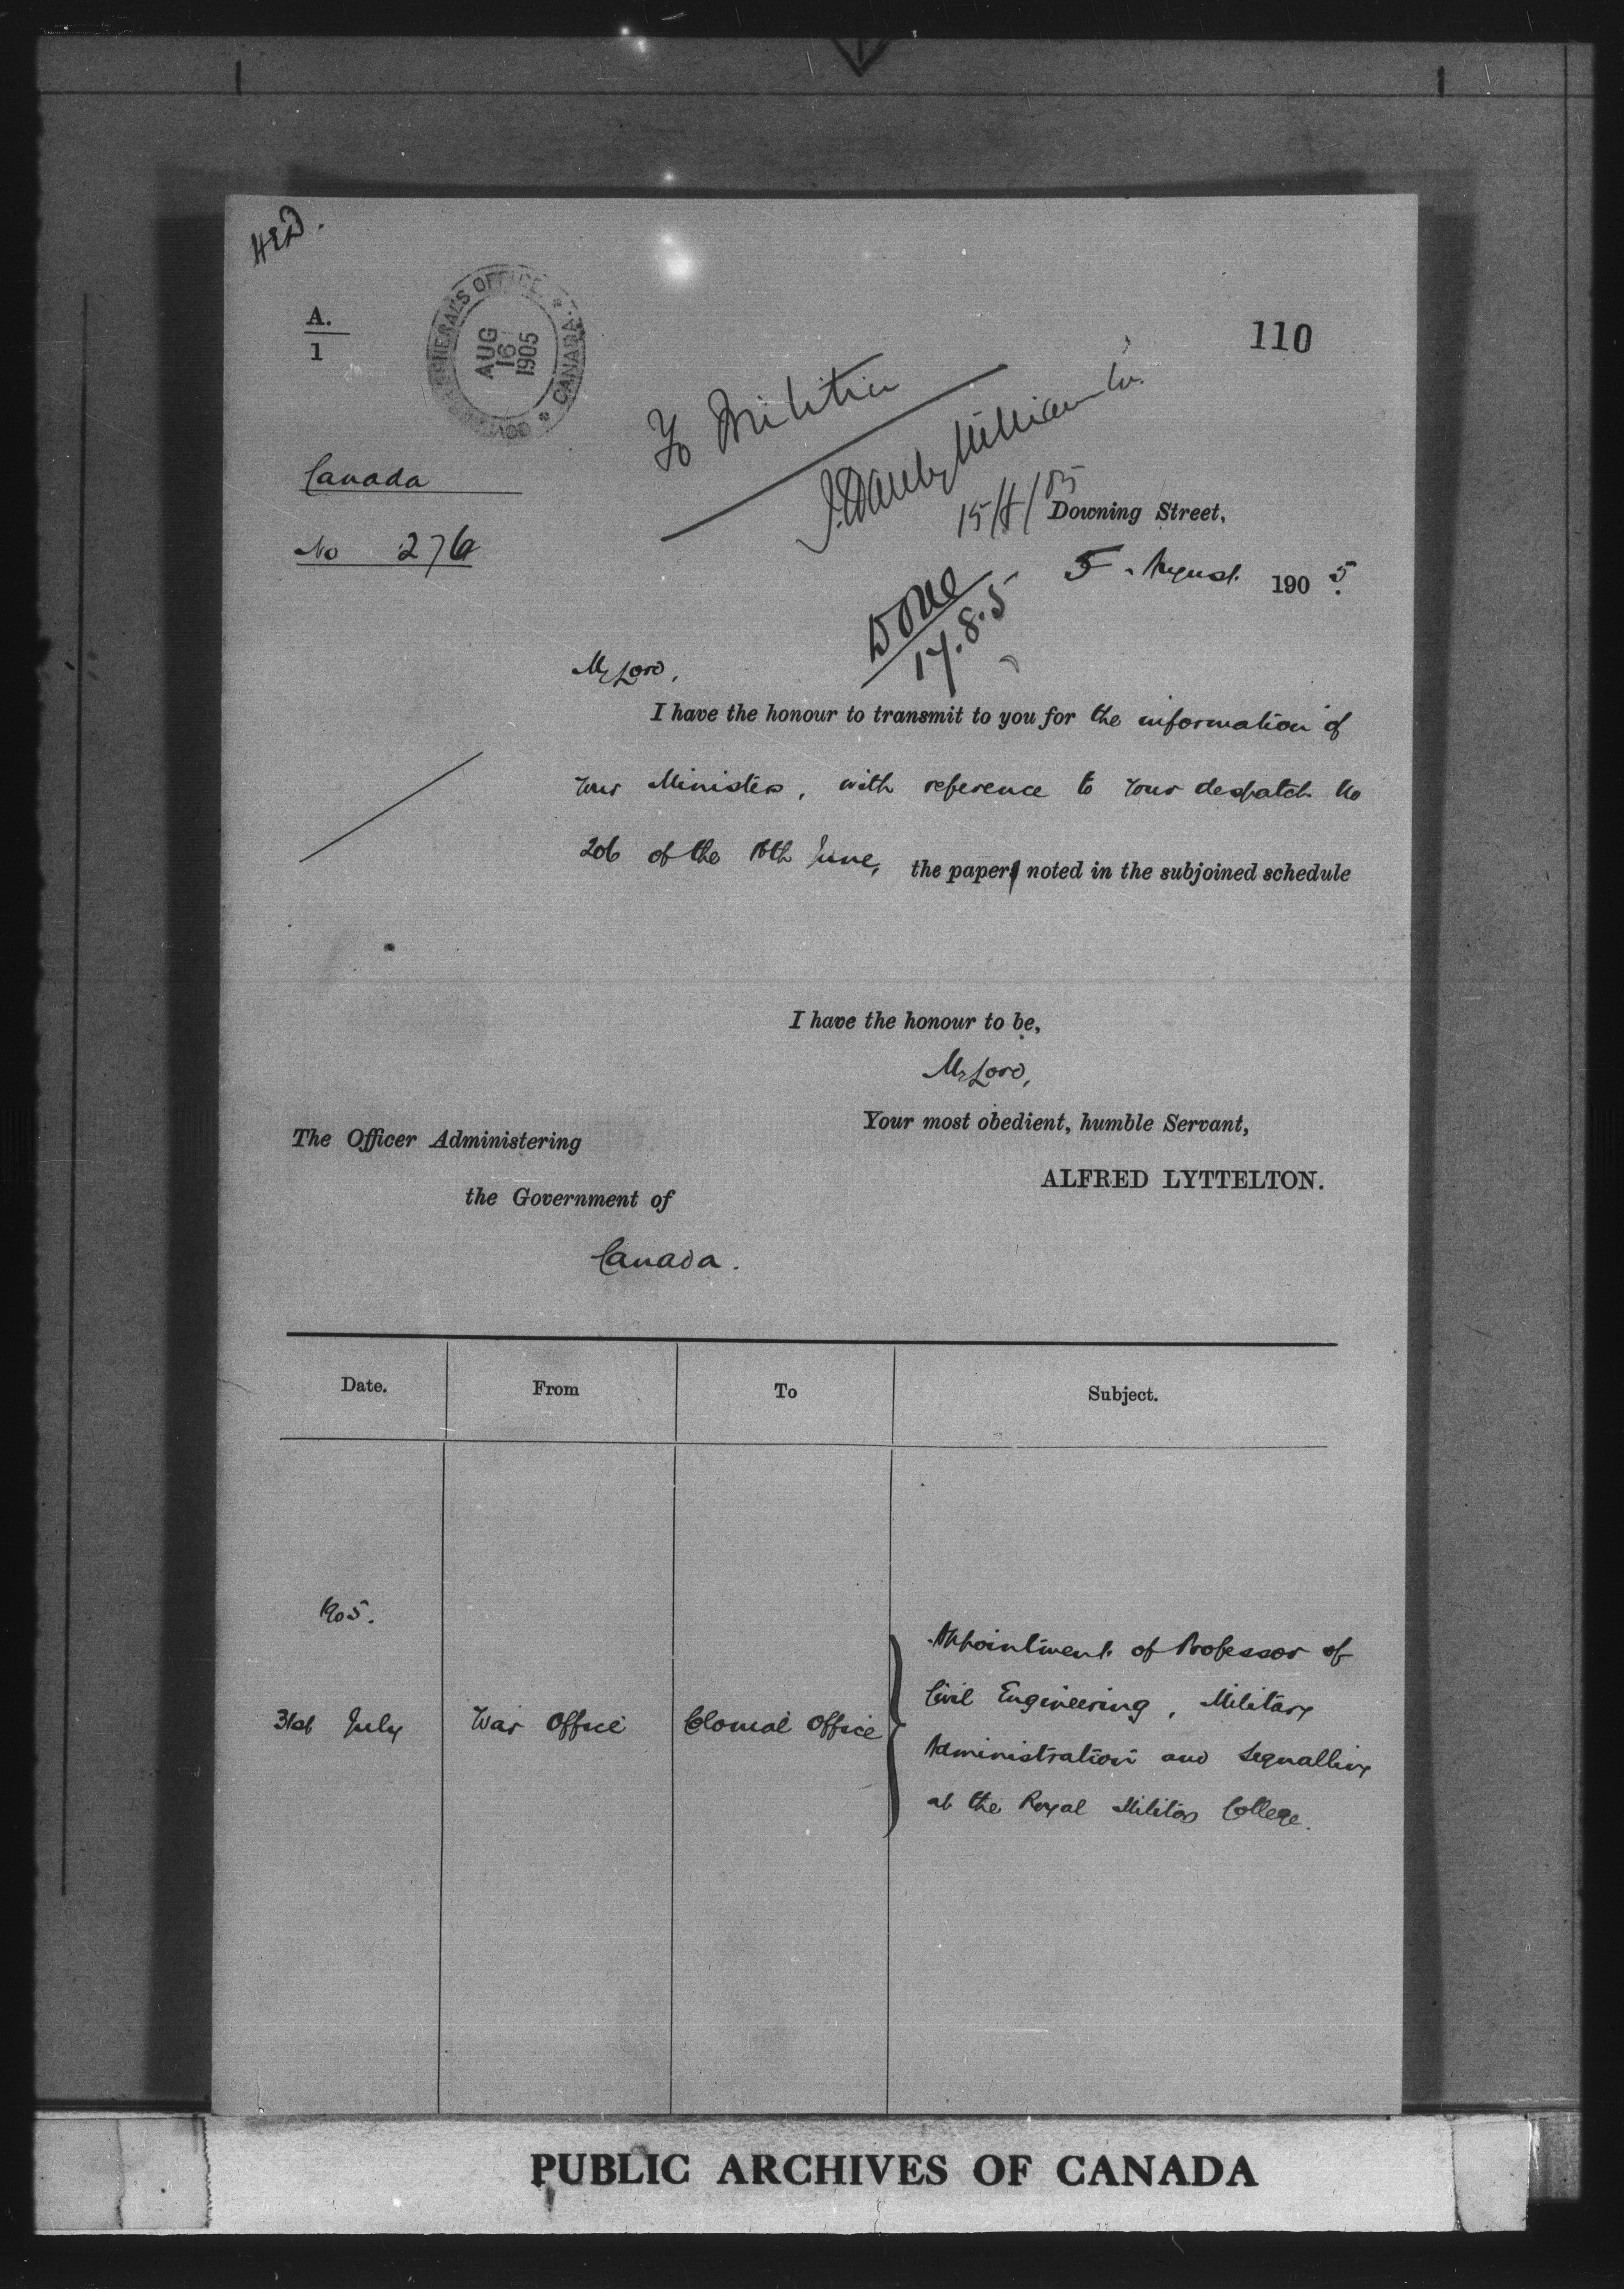 HED.
A.
1
GOVERNOR GENERAL'S OFFICE * CANADA *
AUG
16
1905
110
To Militia
15/8/05
Canada
No 276
Downing Street,
5 August 1905.
Done
17.8.5
My Lord,
I have the honour to transmit to you for the information of
Your Ministers, with reference to Your despatch No
206 of the 16th June, the paper noted in the subjoined schedule
I have the honour to be,
My Lord,
Your most obedient, humble Servant,
ALFRED LYTTELTON.
The Officer Administering
the Government of
Canada.
Date. From To Subject.
1905.
31st July War Office Colonial Office
Appointment of Professor of
Civil Engineering, Military
Administration and Signalling
at the Royal Military College.
PUBLIC ARCHIVES OF CANADA